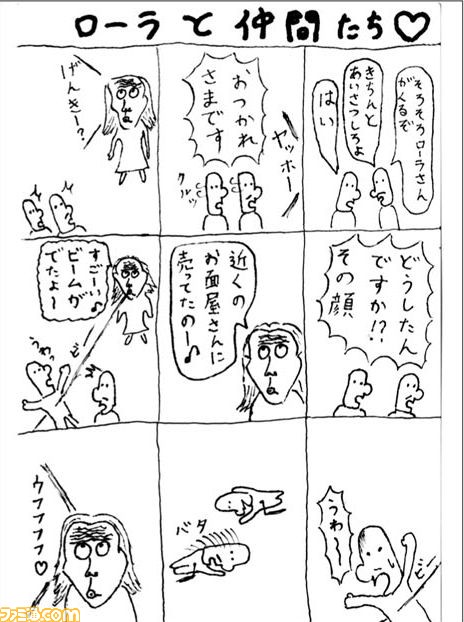 ローラと仲間たち♡
そろそろローラさん
がくるぞ
きちんと
あいさつしろよ
はい
ヤッホー
おつかれ
さまです
クルッ
げんきー？
どうしたん
ですか!?
その顔
近くの
お面屋さんに
売ってたのー♪
すごーい
ビームが
でたよ〜♪
ビ
うわっ
うわ〜
ビ
バタ
ウフフフフ♡
ファミ通.com